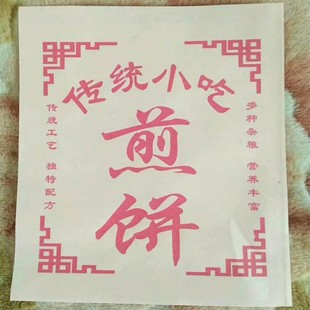 传统小吃
煎饼
传统工艺 独特配方
多种杂粮 营养丰富